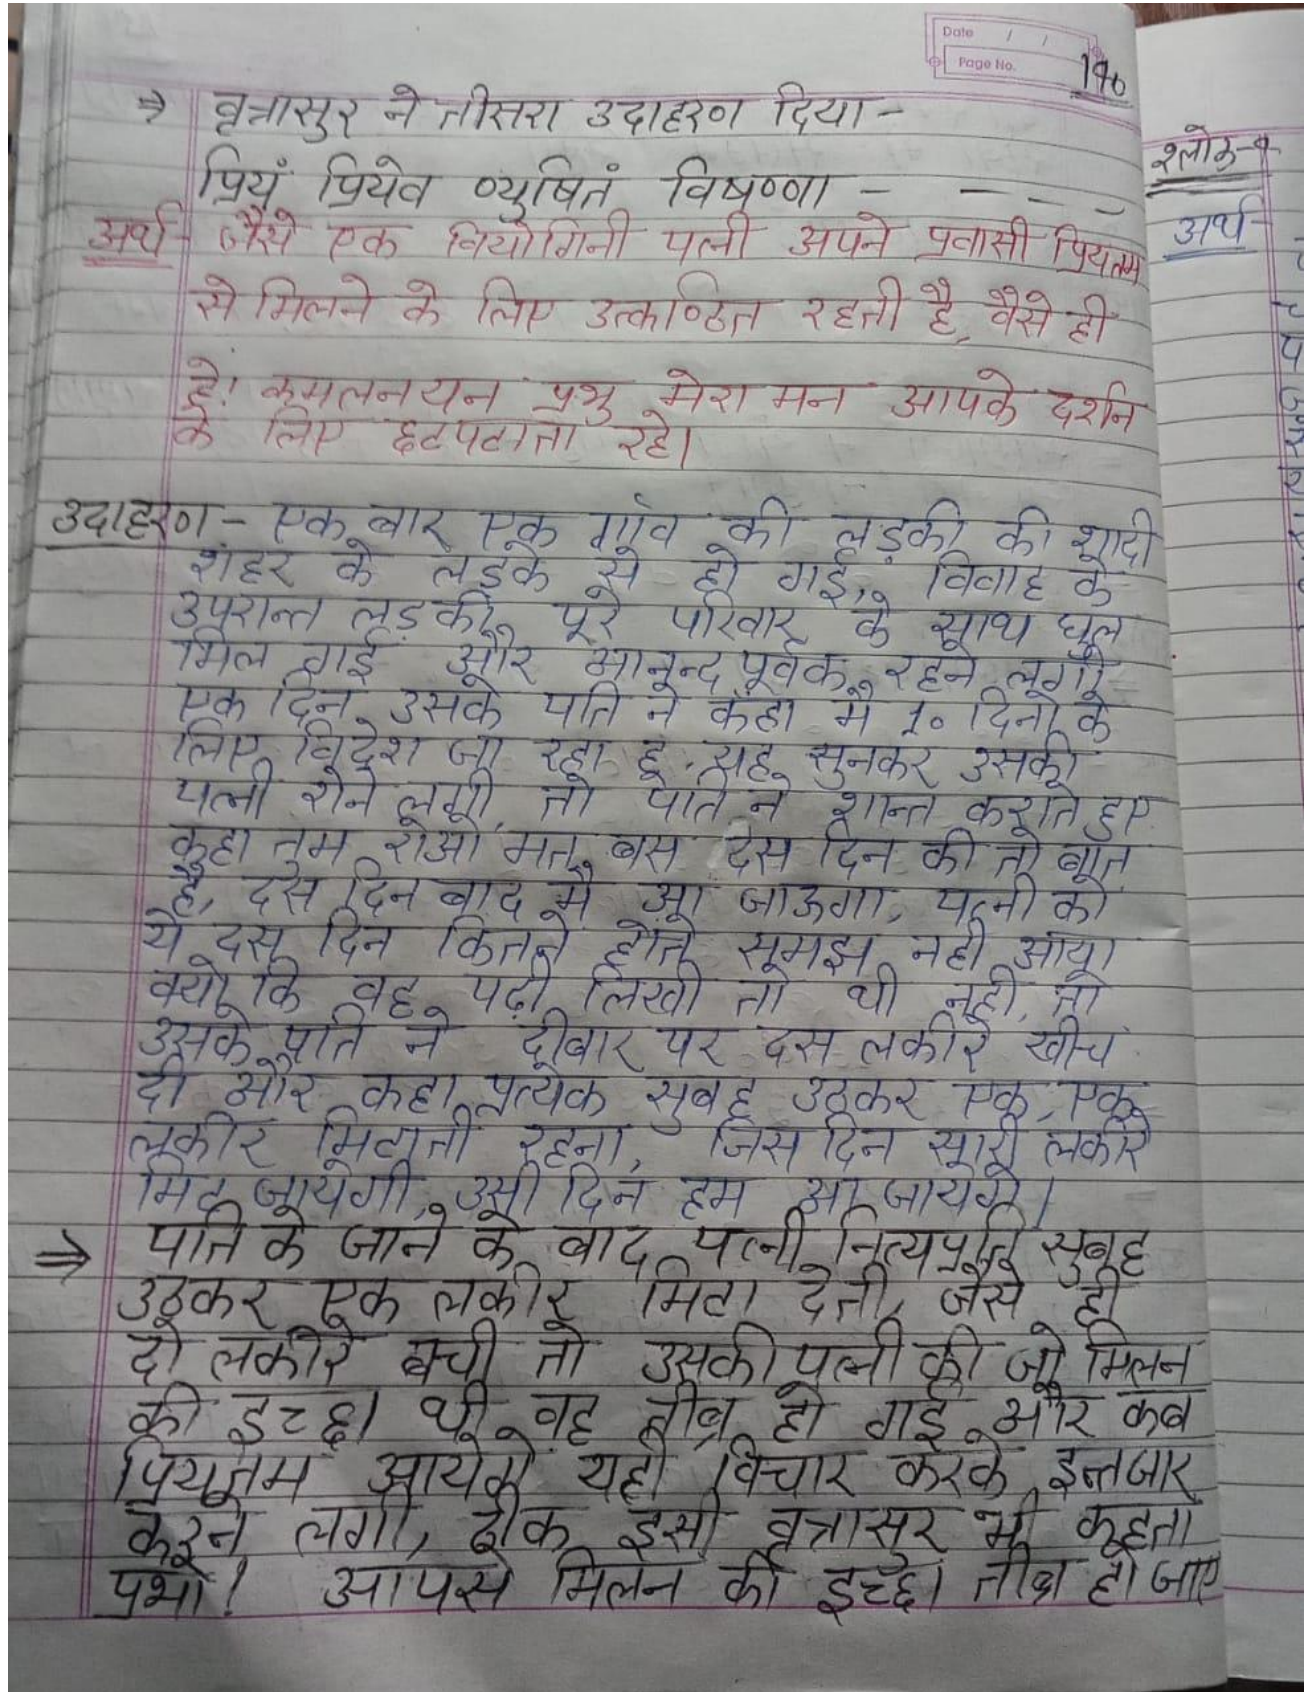 Date / /
Page No. 176
⇒ वृत्रासुर ने तीसरा उदाहरण दिया -
प्रियं प्रियेव व्युषितं विषण्णा - - - -
अर्थ- जैसे एक वियोगिनी पत्नी अपने प्रवासी प्रियतम
से मिलने के लिए उत्कण्ठित रहती है, वैसे ही
हे! कमलनयन प्रभु मेरा मन आपके दर्शन
के लिए छटपटाता रहे।
उदाहरण - एक बार एक गाँव की लड़की की शादी
शहर के लड़के से हो गई, विवाह के
उपरान्त लड़की पूरे परिवार के साथ घुल
मिल गई और आनन्द पूर्वक रहने लगी
एक दिन उसके पति ने कहा मै 10 दिनो के
लिए विदेश जा रहा हूं यह सुनकर उसकी
पत्नी रोने लगी, तो पति ने शान्त कराते हुए
कहा तुम रोओ मत बस दस दिन की तो बात
है, दस दिन बाद मै आ जाऊगा, पत्नी को
ये दस दिन कितने होते समझ नही आया
क्यो कि वह पढ़ी लिखी तो थी नही, तो
उसके पति ने दीवार पर दस लकीरे खींच
दी और कहा प्रत्येक सुबह उठकर एक, एक
लकीर मिटाती रहना, जिस दिन सारी लकीरे
मिट जायेगी, उसी दिन हम आ जायेगे।
⇒ पति के जाने के बाद पत्नी नित्यप्रति सुबह
उठकर एक लकीर मिटा देती, जैसे ही
दो लकीरे बची तो उसकी पत्नी की जो मिलन
की इच्छा थी वह तीव्र हो गई और कब
प्रियतम आयेगे यही विचार करके इन्तजार
करने लगी, ठीक इसी वृत्रासुर भी कहता
प्रभो! आपसे मिलन की इच्छा तीव्र हो जाए
श्लोक-
अर्थ-